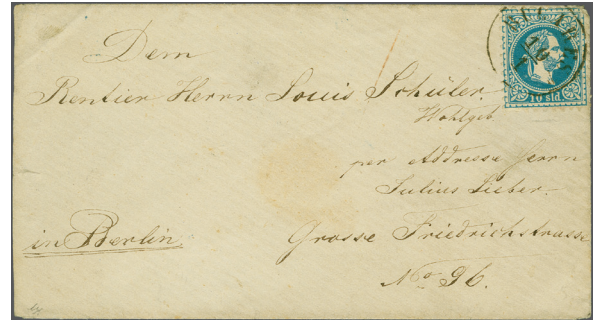 Dem
Rentier Herrn Louis Schüler.
Wohlgeb
per Addresse Herrn
Julius Lieber.
in Berlin.
Grosse Friedrichstrasse
No 96.
10 sld.